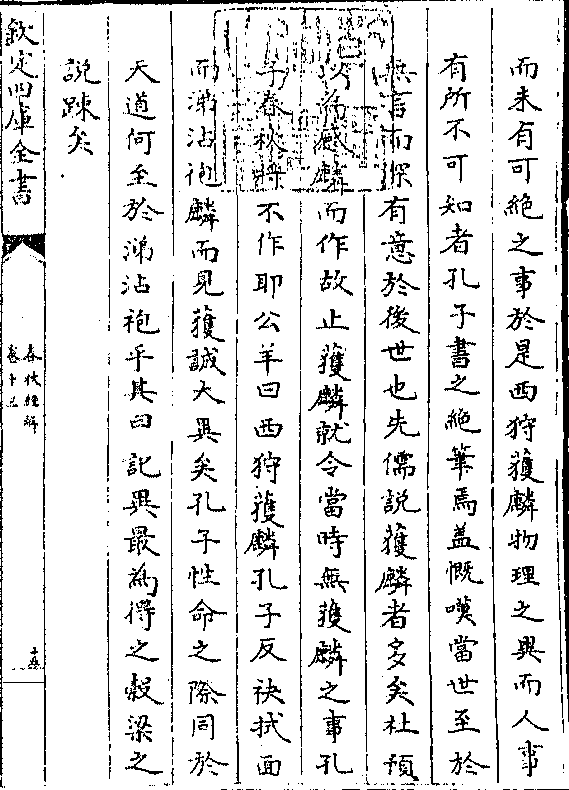 而未有可絶之事於是西狩獲麟物理之異而人事
有所不可知者孔子書之絶筆焉盖慨嘆當世至於
無言而深有意於後世也先儒說獲麟者多矣杜預
以為感麟而作故止獲麟就令當時無獲麟之事孔
子春秋將不作耶公羊曰西狩獲麟孔子反袂拭面
而涕沾袍麟而見獲誠大異矣孔子性命之際同於
天道何至於涕沾袍乎其曰記異最為得之榖梁之
說踈矣
欽定四庫全書
春秋經解
卷十三